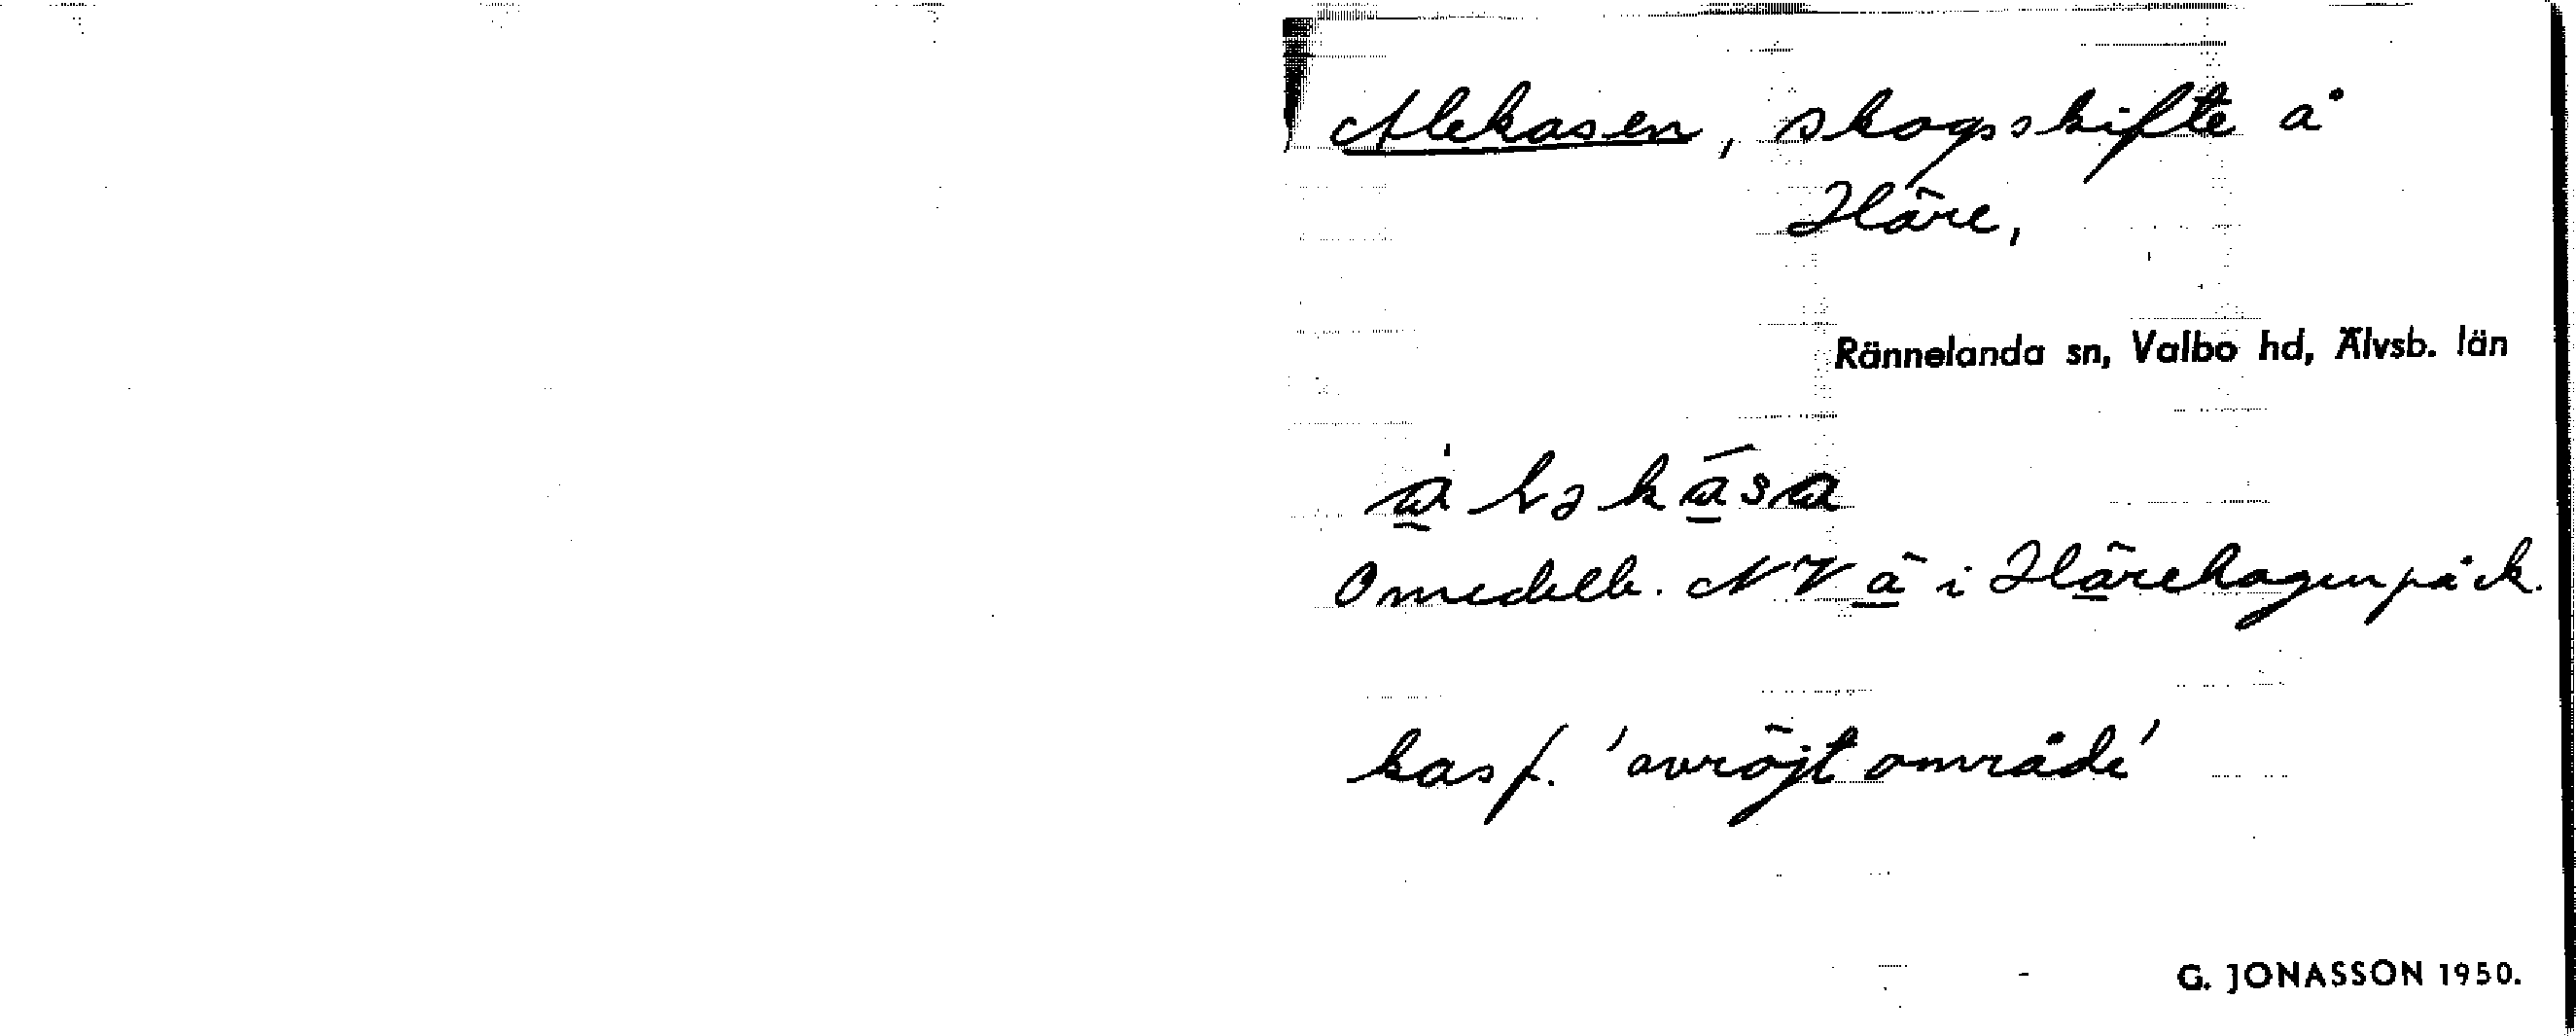 Alekasen, skogsskifte å
Häre,
Rännelanda sn, Valbo hd, Älvsb. län
Omedelb. NV ä i Härehagen på ek.
kas f. 'avröjt område'
G. JONASSON 1950.